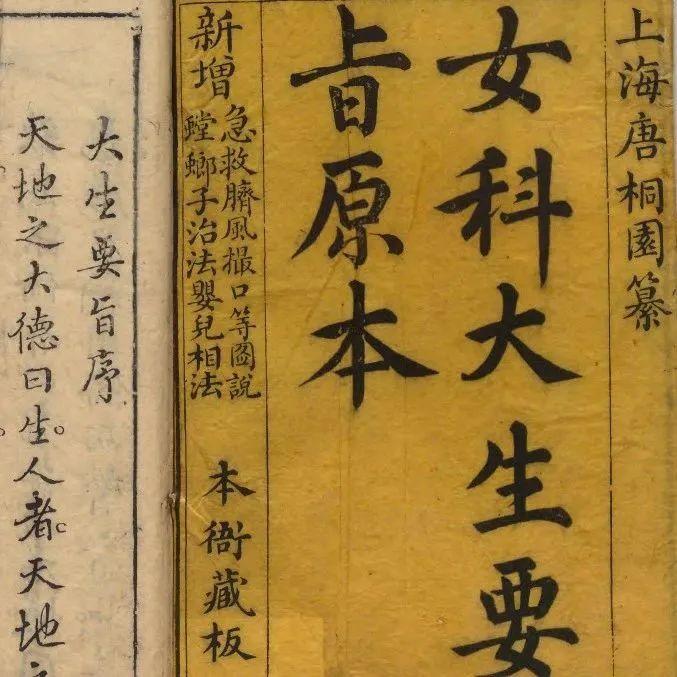 上海唐桐園纂
女科大生要
旨原本
新增
急救臍風撮口等圖說
螳螂子治法嬰兒相法
本衙藏板
大生要旨序
天地之大德曰生。人者。天地之